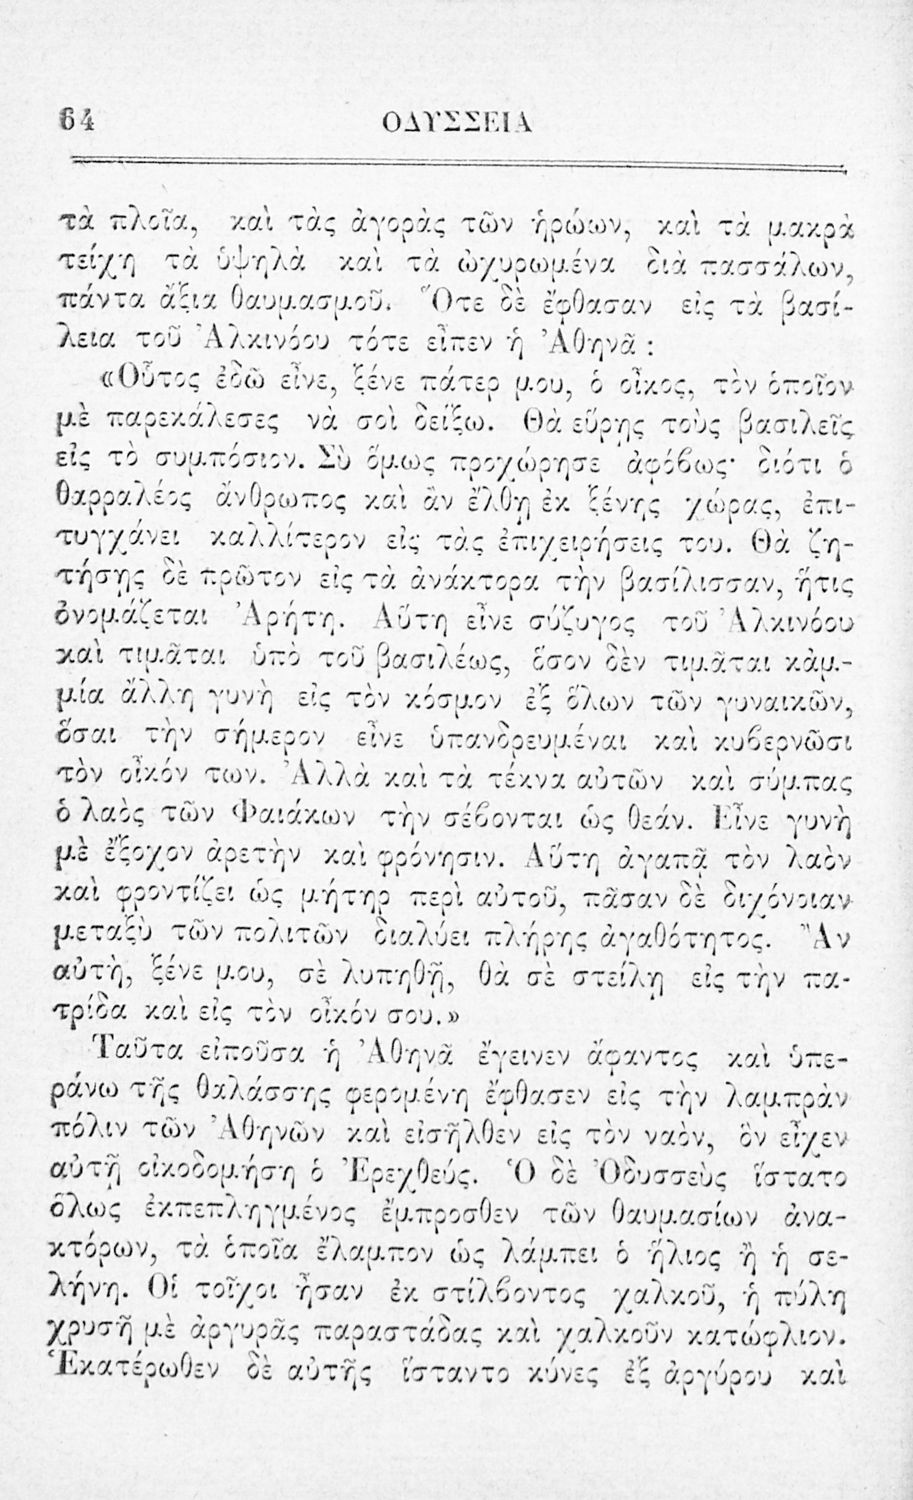 64
ΟΔΥΣΣΕΙΑ
τὰ πλοῖα, καὶ τὰς ἀγορὰς τῶν ἡρώων, καὶ τὰ μακρὰ
τείχη τὰ ὑψηλὰ καὶ τὰ ὠχυρωμένα διὰ πασσάλων,
πάντα ἄξια θαυμασμοῦ. Ὅτε δὲ ἔφθασαν εἰς τὰ βασί-
λεια τοῦ Ἀλκινόου τότε εἶπεν ἡ Ἀθηνᾶ :
«Οὗτος ἐδῶ εἶνε, ξένε πάτερ μου, ὁ οἶκος, τὸν ὁποῖον
μὲ παρεκάλεσες νὰ σοὶ δείξω. Θὰ εὕρῃς τοὺς βασιλεῖς
εἰς τὸ συμπόσιον. Σὺ ὅμως προχώρησε ἀφόβως· διότι ὁ
θαρραλέος ἄνθρωπος καὶ ἂν ἔλθῃ ἐκ ξένης χώρας, ἐπι-
τυγχάνει καλλίτερον εἰς τὰς ἐπιχειρήσεις του. Θὰ ζη-
τήσῃς δὲ πρῶτον εἰς τὰ ἀνάκτορα τὴν βασίλισσαν, ἥτις
ὀνομάζεται Ἀρήτη. Αὕτη εἶνε σύζυγος τοῦ Ἀλκινόου
καὶ τιμᾶται ὑπὸ τοῦ βασιλέως, ὅσον δὲν τιμᾶται κἀμ-
μία ἄλλη γυνὴ εἰς τὸν κόσμον ἐξ ὅλων τῶν γυναικῶν,
ὅσαι τὴν σήμερον εἶνε ὑπανδρευμέναι καὶ κυβερνῶσι
τὸν οἶκόν των. Ἀλλὰ καὶ τὰ τέκνα αὐτῶν καὶ σύμπας
ὁ λαὸς τῶν Φαιάκων τὴν σέβονται ὡς θεάν. Εἶνε γυνὴ
μὲ ἔξοχον ἀρετὴν καὶ φρόνησιν. Αὕτη ἀγαπᾷ τὸν λαὸν
καὶ φροντίζει ὡς μήτηρ περὶ αὐτοῦ, πᾶσαν δὲ διχόνοιαν
μεταξὺ τῶν πολιτῶν διαλύει πλήρης ἀγαθότητος. Ἂν
αὐτὴ, ξένε μου, σὲ λυπηθῇ, θὰ σὲ στείλῃ εἰς τὴν πα-
τρίδα καὶ εἰς τὸν οἶκόν σου.»
Ταῦτα εἰποῦσα ἡ Ἀθηνᾶ ἔγεινεν ἄφαντος καὶ ὑπε-
ράνω τῆς θαλάσσης φερομένη ἔφθασεν εἰς τὴν λαμπρὰν
πόλιν τῶν Ἀθηνῶν καὶ εἰσῆλθεν εἰς τὸν ναὸν, ὃν εἶχεν
αὐτῇ οἰκοδομήσῃ ὁ Ἐρεχθεύς. Ὁ δὲ Ὀδυσσεὺς ἵστατο
ὅλως ἐκπεπληγμένος ἔμπροσθεν τῶν θαυμασίων ἀνα-
κτόρων, τὰ ὁποῖα ἔλαμπον ὡς λάμπει ὁ ἥλιος ἢ ἡ σε-
λήνη. Οἱ τοῖχοι ἦσαν ἐκ στίλβοντος χαλκοῦ, ἡ πύλη
χρυσῆ μὲ ἀργυρᾶς παραστάδας καὶ χαλκοῦν κατώφλιον.
Ἑκατέρωθεν δὲ αὐτῆς ἵσταντο κύνες ἐξ ἀργύρου καὶ